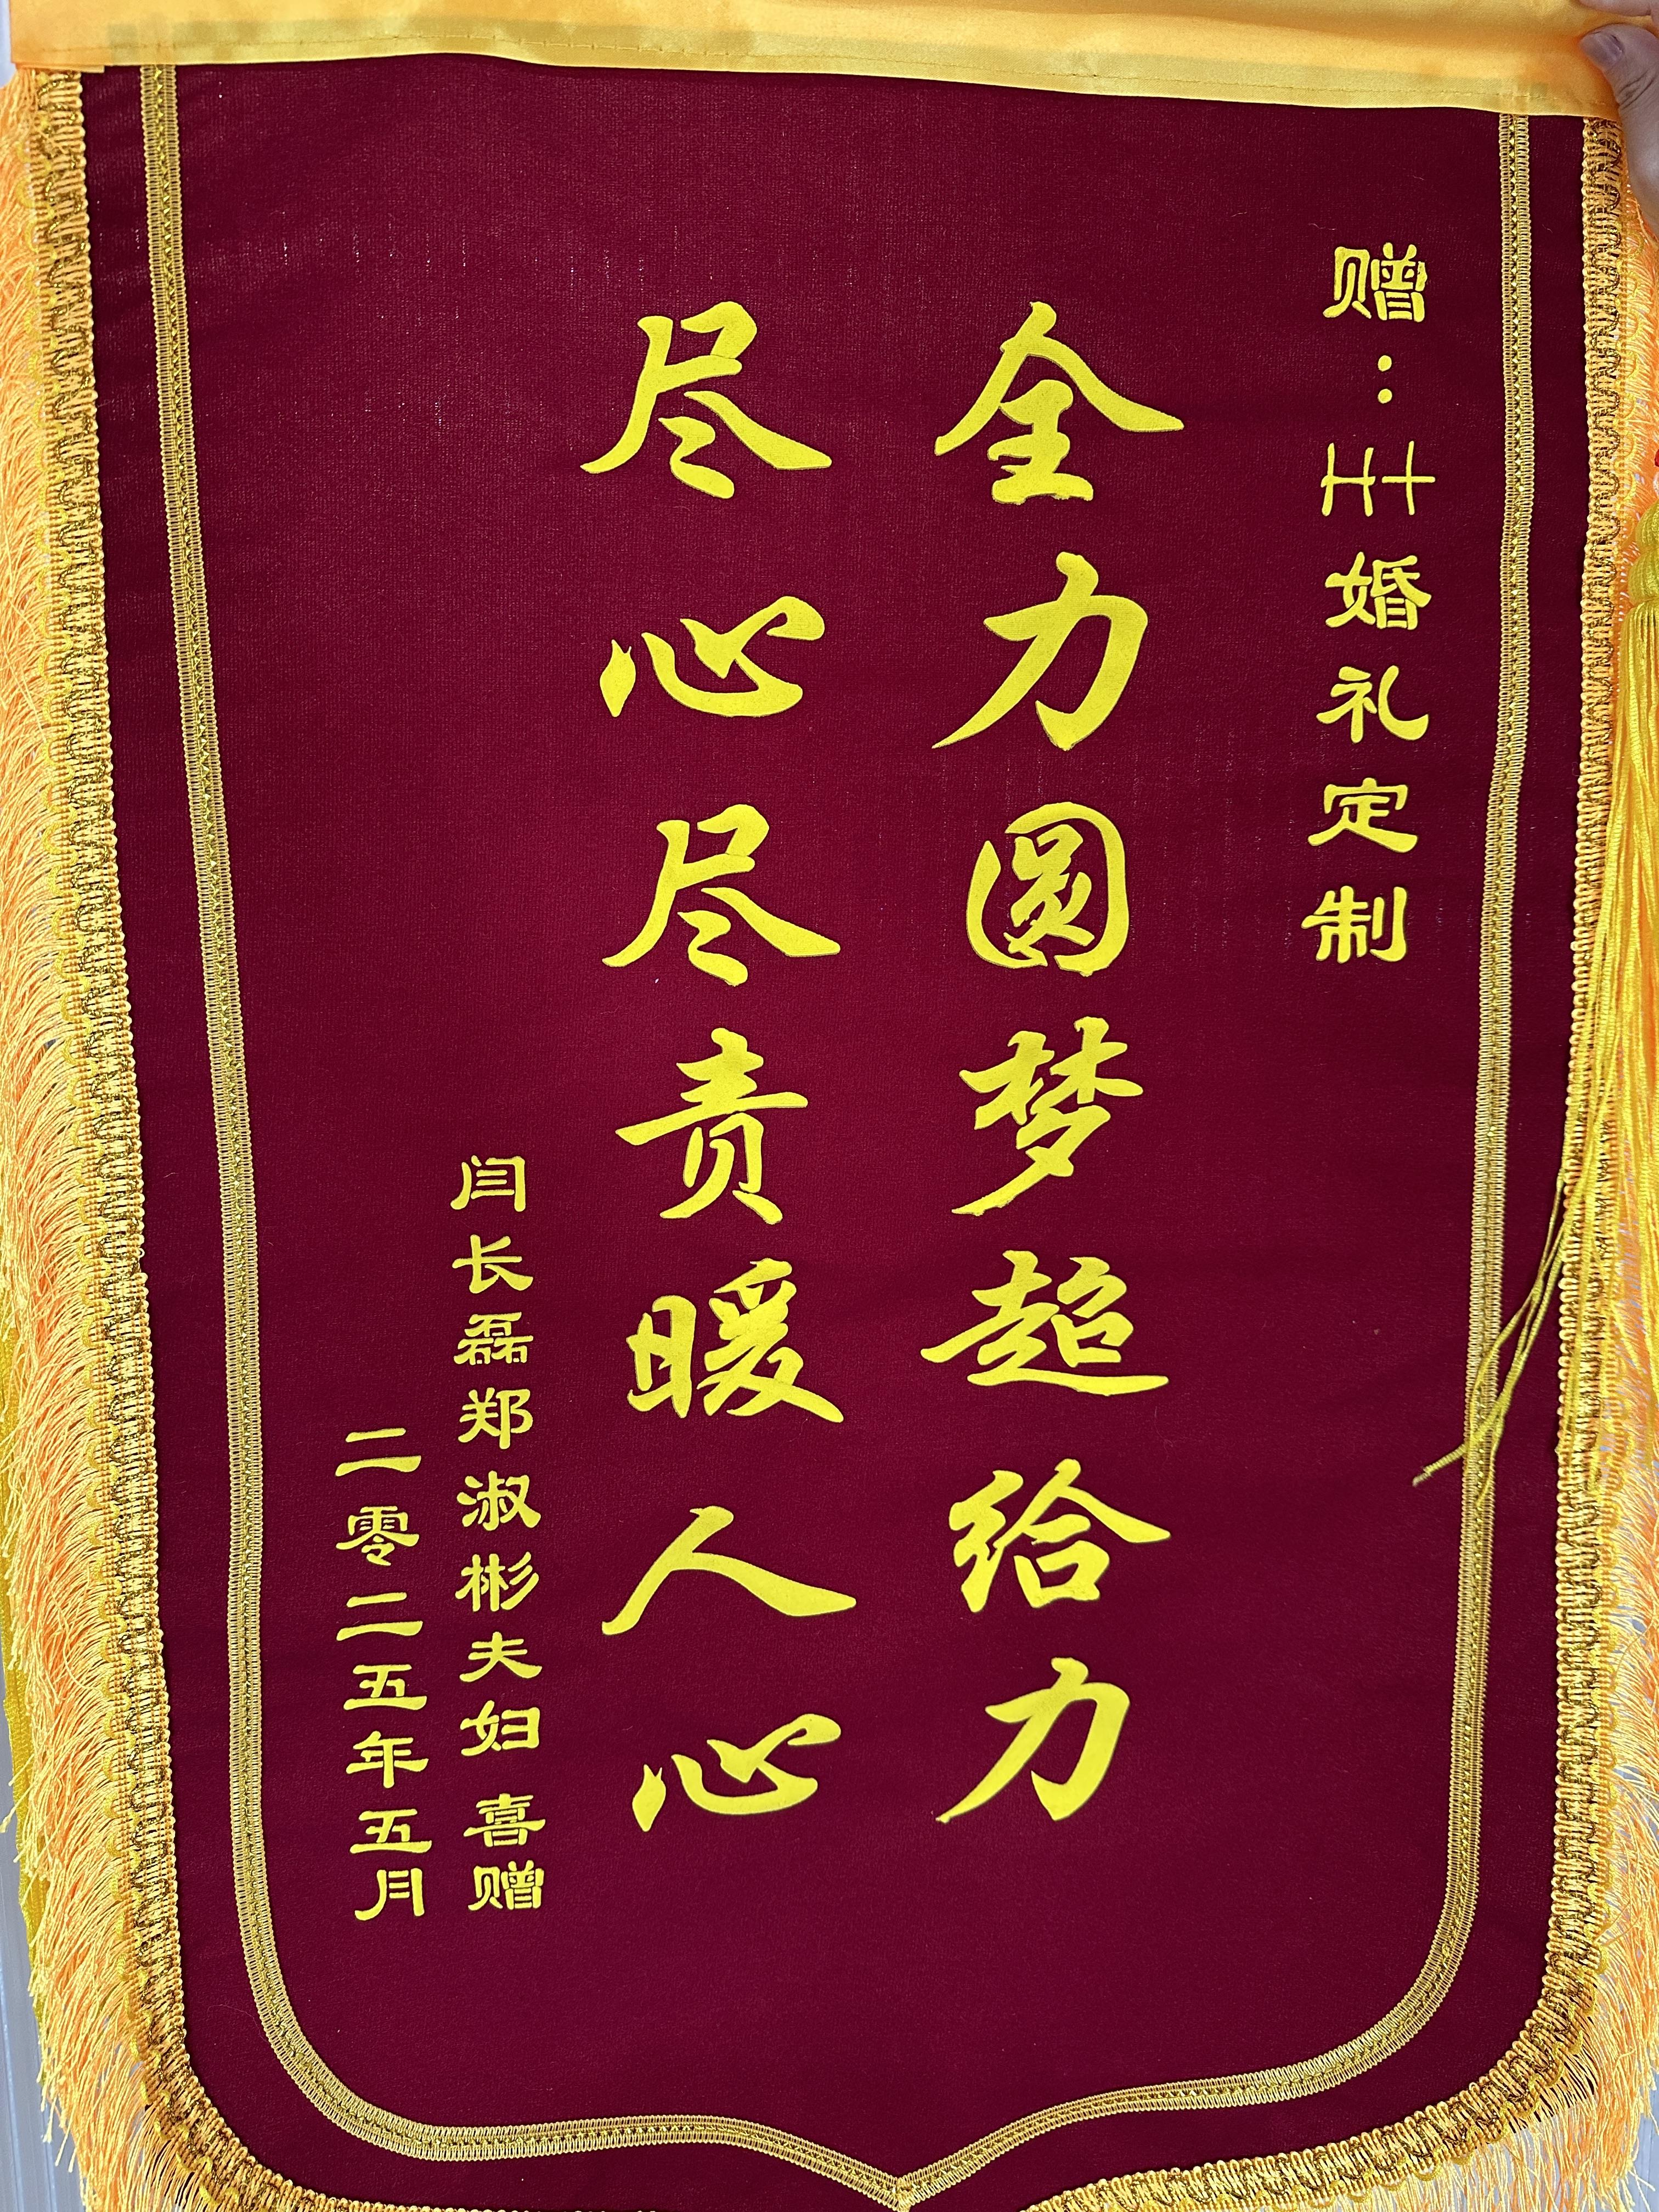 赠：H+婚礼定制
全力圆梦超给力
尽心尽责暖人心
闫长磊郑淑彬夫妇 喜赠
二零二五年五月